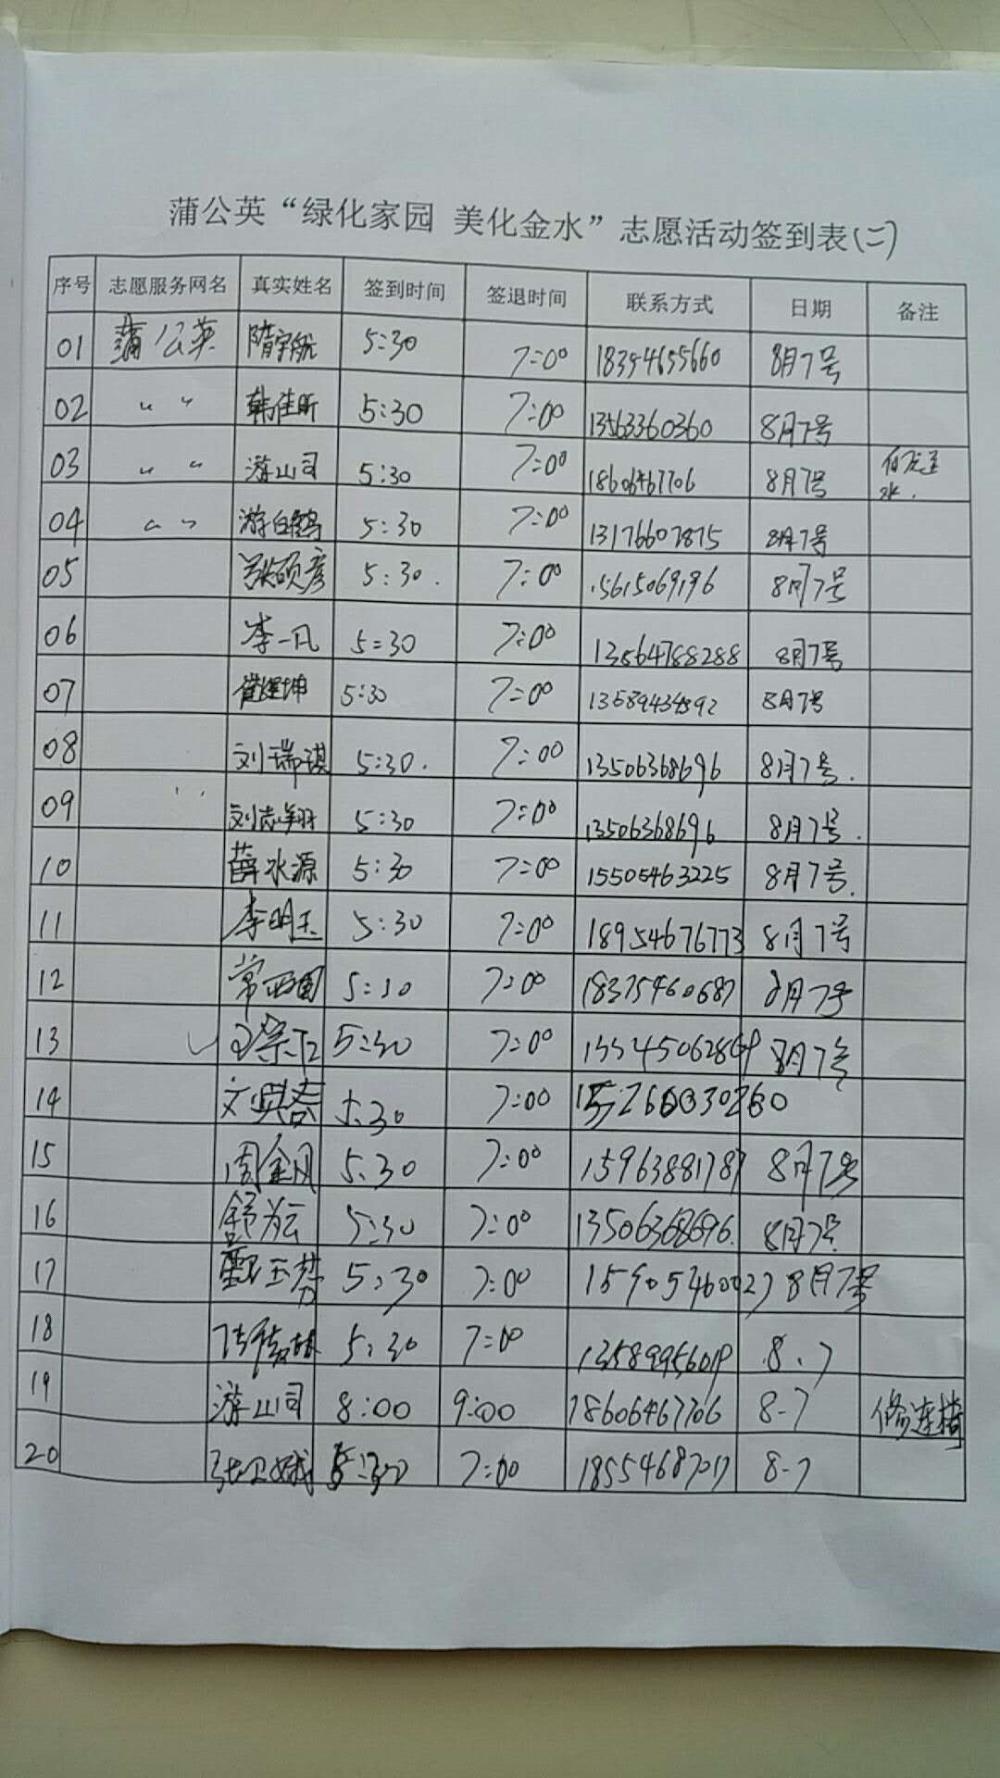 蒲公英“绿化家园 美化金水”志愿活动签到表(二)
序号 志愿服务网名 真实姓名 签到时间 签退时间 联系方式 日期 备注
01 蒲公英 隋宇航 5:30 7:00 18354655660 8月7号
02 〃 〃 韩佳昕 5:30 7:00 13563360360 8月7号
03 〃 〃 游山司 5:30 7:00 18606467706 8月7号 水.
04 〃 〃 游白鹤 5:30 7:00 13176607875 8月7号
05 张硕彦 5:30. 7:00 15615069196 8月7号
06 李一凡 5:30 7:00 13564788288 8月7号
07 崔继坤 5:30 7:00 13589434892 8月7号
08 刘瑞琪 5:30. 7:00 13506368696 8月7号.
09 〃 刘志翔 5:30 7:00 13506368696 8月7号.
10 薛水源 5:30 7:00 15505463225 8月7号.
11 李明玉 5:30 7:00 18954676773 8月7号
12 常西国 5:30 7:00 18375460687 8月7号
13 5:30 7:00 8月7号
14 5:30 7:00
15 周金凤 5:30 7:00 15963881787 8月7号
16 5:30 7:00 13506368696. 8月7号
17 5:30 7:00 15905460027 8月7号
18 5:30 7:00 13589956019 8.7
19 游山司 8:00 9:00 18606467706 8-7 修连椅
20 张卫娥 5:30 7:00 18554687017 8-7